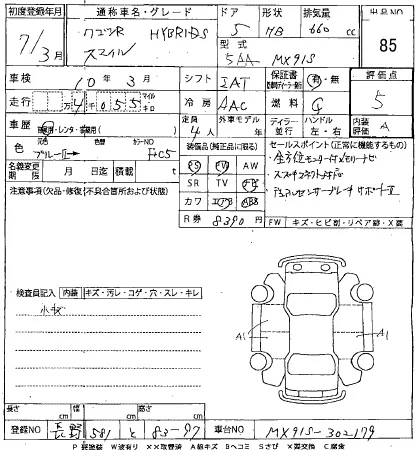 初度登録年月 通称車名・グレード ドア 形状 排気量 出品NO
7/3月 ワゴンR HYBRID-S 5 HB 660cc 85
スマイル 型式
5AA MX91S
車検 10年3月 シフト IAT 保証書 有・無 評価点
走行 万4千055 マイル キロ 冷房 AAC 燃料 G 5
車歴 自家用・レンタ・ 定員 4人 外車モデル ディーラー 並行 ハンドル 左・右 内装評価 A
元色 色替 カラーNO 装備品(純正品に限る) セールスポイント(正常に機能するもの)
ブルーII F+C5 PS PW AW
名義変更期限 月 日迄 積載 t SR TV
注意事項(欠品・修復・不具合箇所および状態) カワ エアB ABS
R券 8390円 FW キズ・ヒビ割・リペア跡・X要
検査員記入 内装 キズ・汚レ・コゲ・穴・スレ・キレ
小キズ
A1 A1
長さ cm 幅 cm 高さ cm
登録NO 長野 581 と 83-97 車台NO MX91S-302179
P 要塗装 W波有り XX取替済 A線キズ Bヘコミ Sさび X要交換 C腐食